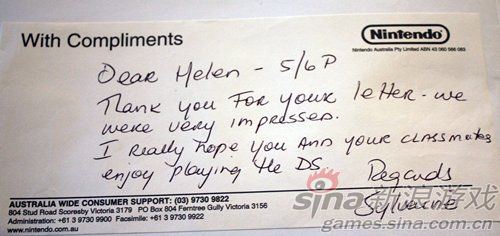 With Compliments
Nintendo
Nintendo Australia Pty Limited ABN 43 060 566 083
Dear Helen - 5/6P
Thank you for your letter - we
were very impressed.
I really hope you and your classmates
enjoy playing the DS.
Regards
Sylvaine
AUSTRALIA WIDE CONSUMER SUPPORT: (03) 9730 9822
804 Stud Road Scoresby Victoria 3179 PO Box 804 Ferntree Gully Victoria 3156
Administration: +61 3 9730 9900 Facsimile: +61 3 9730 9922
www.nintendo.com.au
sina新浪游戏
games.sina.com.cn